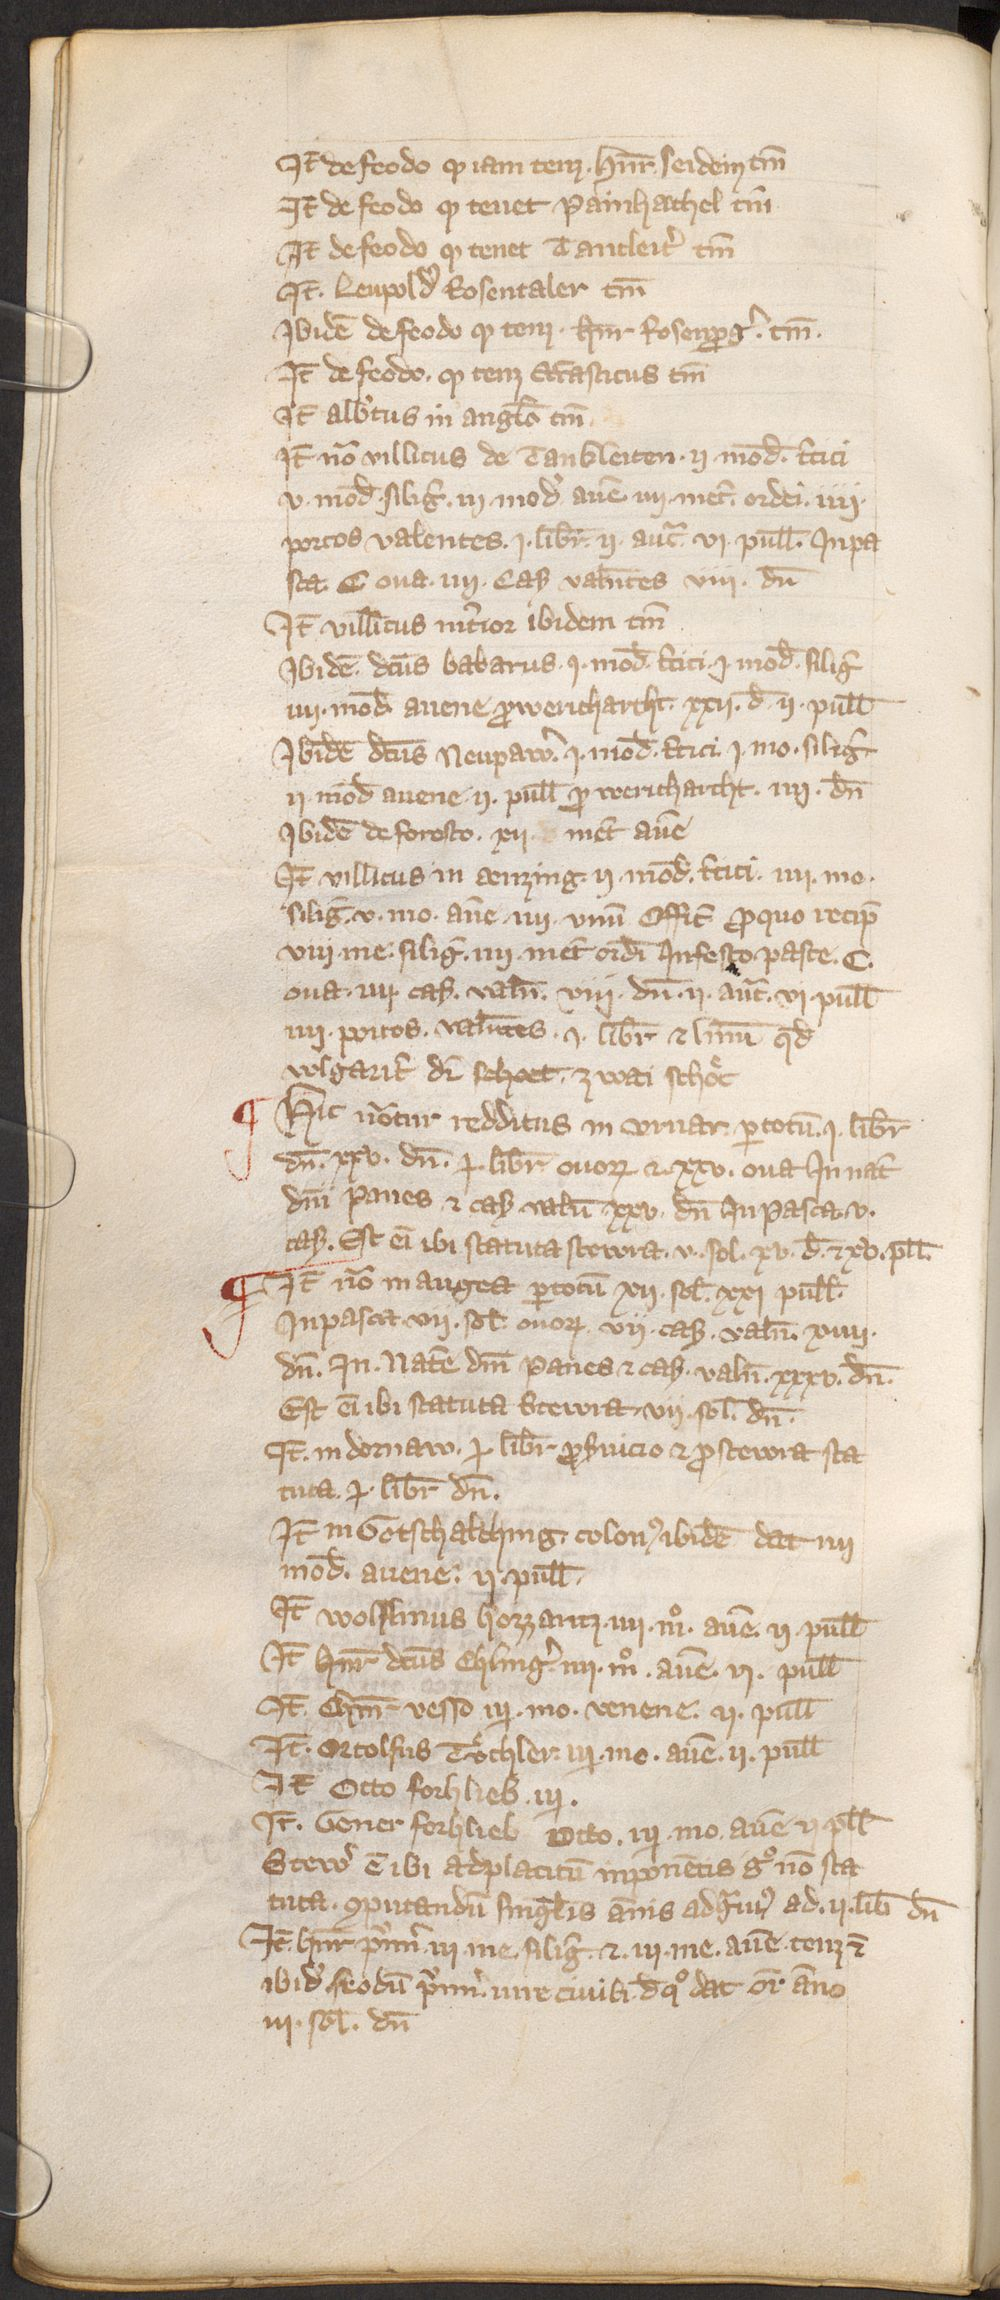 It̄ de feodo q iam tenꝫ. hnr̄. seidein tm̄
It̄ de feodo q tenet Painhachel tm̄
It̄ de feodo q tenet Tancleit͛ tm̄
It̄. Leupold͛ Rosentaler tm̄
Ibidē de feodo q tenꝫ. hnr Rosenp͛g͛. tm̄.
It̄ de feodo. q tenꝫ tm̄
It̄ alb͛tus in anglo tm̄
It̄ nō villicus de Tankleiten. ij. mod̄. t͛tici
v. mod̄. siliḡ. iij. mod͛ auē. iiij. met͛. ordei. iiij.
porcos valentes. j. libr̄. ij. auc̄. vi. pull̄. In pa
sca. C oua. iiij. Cas valn̄tes viii. dn̄
It̄ vill̄icus int͛ior ibidem tm̄
Ibidē. dc̄us babarus. j. mod̄. t͛tici. j. mod̄. siliḡ
iiij. mod̄. auene ꝓ wericharcht. xxij. d̄. ij. pull̄
Ibidē dc̄us Neupaw͛. j. mod̄. t͛tici. j. mo. siliḡ
ij. mod̄ auene ij. pull̄ ꝓ wericharcht. iiij. dn̄
Ibidē de foresto. xij. met̄ auē
It̄ vill̄icus in enzing. ij. mod̄. t͛tici. iiij. mo.
siliḡ. v. mo. auē. iiij. vnū Offic̄ ꝓ quo recip̄
viij. me. siliḡ. iiij. met̄ ord̄i In festo pasce. C.
oua. iiij. cas. valn̄. viij. dn̄. ij. auc̄. vi. pull̄
iiij. porcos. valn̄tes. j. libr̄ ⁊ linū qd̄
wlgarit͛ dr̄ schoet. zwai schöt
¶ Hic nōtur redditus in vruar. ꝑ totū. j. libr̄
dn̄. xxv. dn̄. j. libr̄ ouoꝝ ⁊ xxv. oua In nat̄
dm̄ panes ⁊ cas valn̄ xxv. dn̄ In Pasca. v.
cas. Est eī ibi statuta stewra. v. sol. xv. d̄. ⁊ xv. pll̄.
¶ It̄ nō in augea ꝑ totū xij. sol̄. xxj pull̄.
In pasca. vij. sol̄. ouoꝝ. vij. cas. valn̄. xiiij.
dn̄. In. Natē dm̄ panes ⁊ cas. valn̄. xxxv. dn̄.
Est eī ibi statuta Stewra. vij. sol̄. dn̄.
It̄. in dornaw. j. libr̄ ꝓ s͛uicio ⁊ ꝓ stewra sta
tuta. j. libr̄ dn̄.
It̄ in Gotschalching. colon⁹ ibidē dat iiij
mod̄. auene. ij. pull̄.
It̄ wolflinus horzzantz. iiij. mº. auē. ij. pull̄
It̄ hnr̄ dc̄us Chling͛. iiij. mº. auē. vi. pull̄
It̄. Chnr̄ vesso iij. mo. venene. ij. pull̄
It̄. Ortolfus Töchler. iij. mo. auē. ij. pull̄
It̄ Otto forhlieb. iij.
It̄. Gener forhlieb Otto. iij. mo. auē ij pll̄
Stewr͛ ē ibi ad placitū inponētis gº nō sta
tuta. ꝯputandū singl̄is annis ad ad. ij. lib̄ dn̄
It̄. hnr̄ p͛nn͛. iij. me. siliḡ. ⁊. iij. me. auē. tenꝫ
ibid͛. feodū p͛nn͛. iure ciuili. d̄ qº dat oī āno
iij. sol̄. dn̄